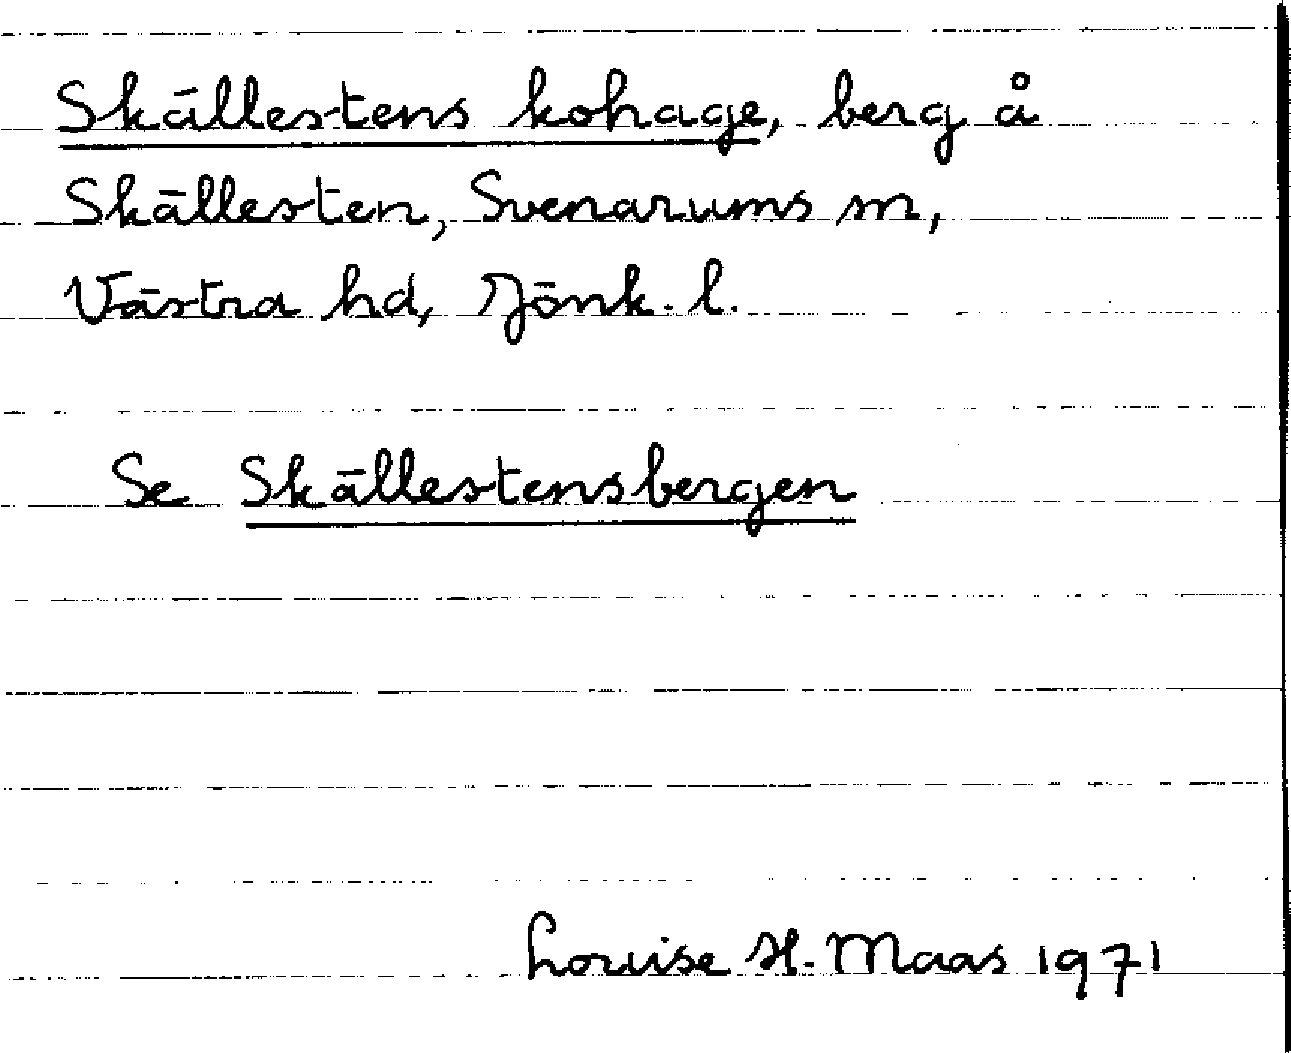 Skällestens kohage, berg å
Skällesten, Svenarums sn,
Västra hd, Jönk. l.
Se Skällestensbergen
Louise H. Maas 1971